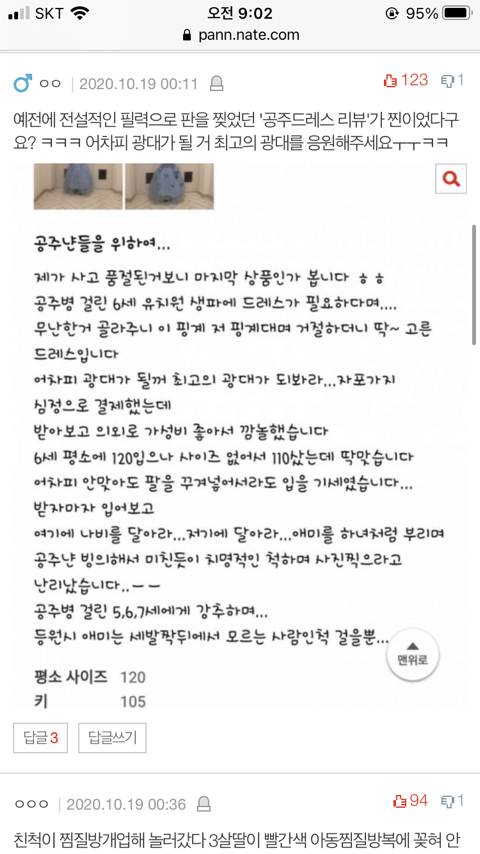 SKT 오전 9:02 95%
pann.nate.com
ㅇㅇ | 2020.10.19 00:11 123 1
예전에 전설적인 필력으로 판을 찢었던 '공주드레스 리뷰'가 찐이었다구
요? ㅋㅋㅋ 어차피 광대가 될 거 최고의 광대를 응원해주세요ㅜㅜㅋㅋ
공주냔들을 위하여...
제가 사고 품절된거보니 마지막 상품인가 봅니다 ㅎㅎ
공주병 걸린 6세 유치원 생파에 드레스가 필요하다며....
무난한거 골라주니 이 핑계 저 핑계대며 거절하더니 딱~ 고른
드레스입니다
어차피 광대가 될꺼 최고의 광대가 되봐라...자포가지
심정으로 결제했는데
받아보고 의외로 가성비 좋아서 깜놀했습니다
6세 평소에 120입으나 사이즈 없어서 110샀는데 딱맞습니다
어차피 안맞아도 팔을 꾸겨넣어서라도 입을 기세였습니다...
받자마자 입어보고
여기에 나비를 달아라...저기에 달아라...애미를 하녀처럼 부리며
공주냔 빙의해서 미친듯이 치명적인 척하며 사진찍으라고
난리났습니다..ㅡㅡ
공주병 걸린 5,6,7세에게 강추하며...
등원시 애미는 세발짝뒤에서 모르는 사람인척 걸을뿐...
맨위로
평소 사이즈 120
키 105
답글 3 답글쓰기
ㅇㅇㅇ | 2020.10.19 00:36 94 1
친척이 찜질방개업해 놀러갔다 3살딸이 빨간색 아동찜질방복에 꽂혀 안